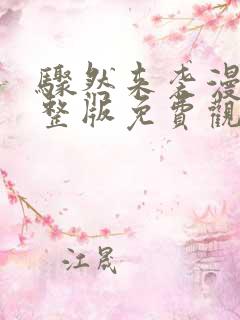 驟然來季漫
整版免費觀
江晟